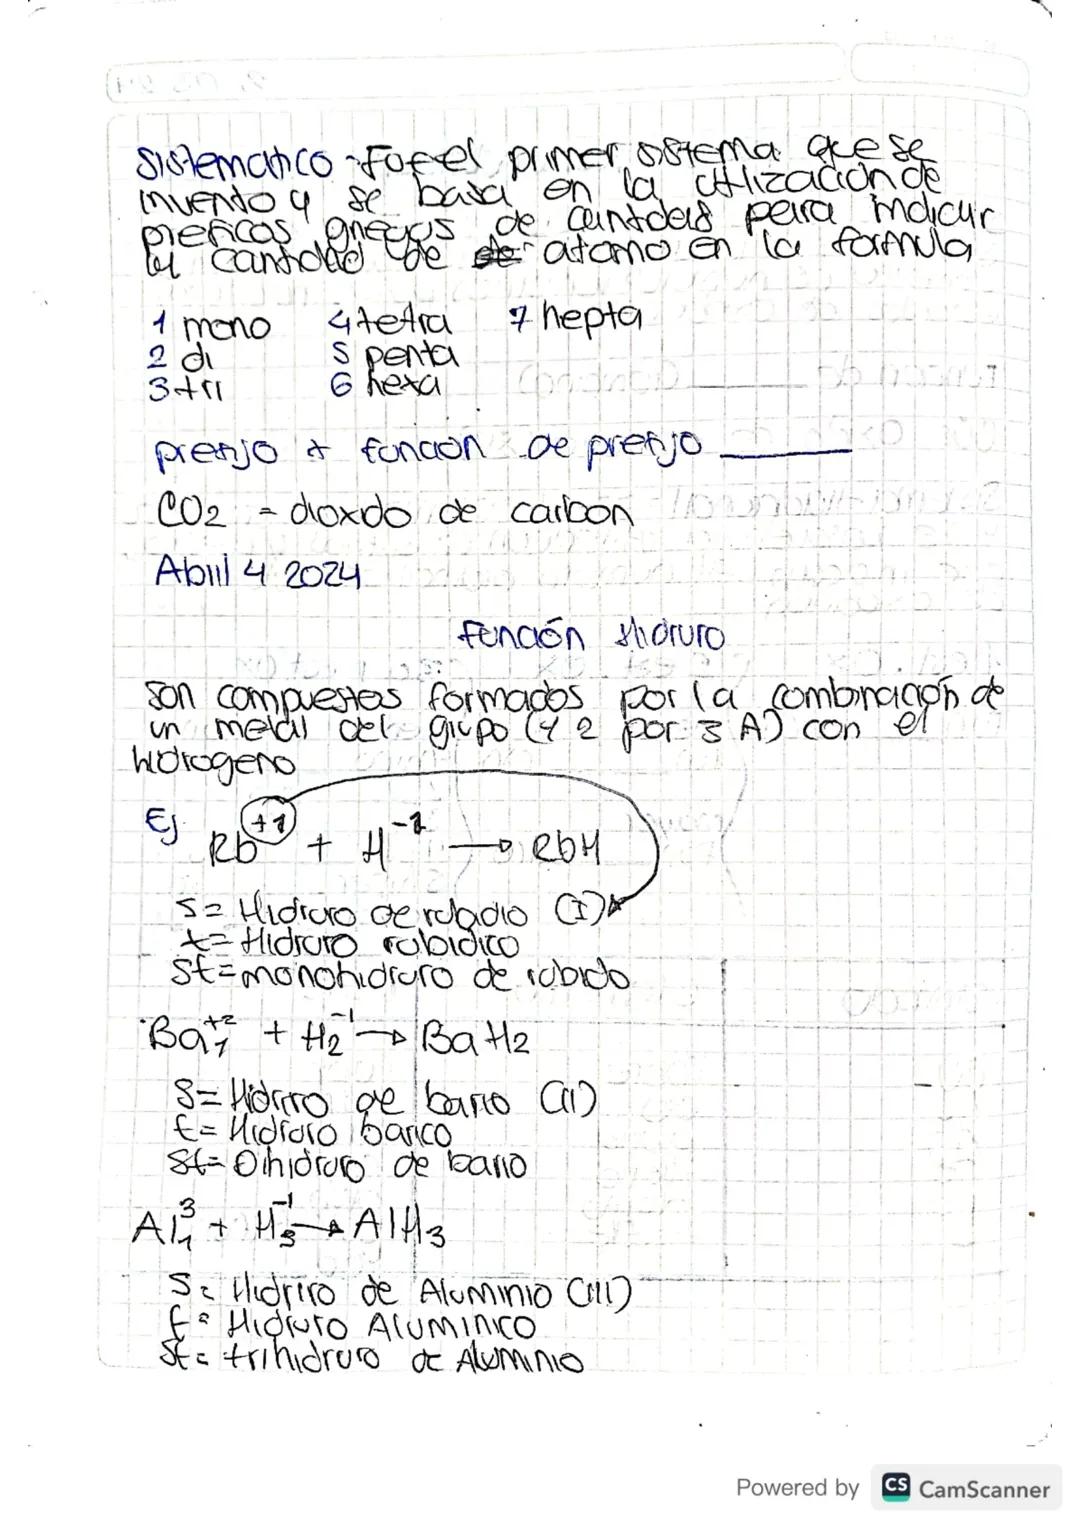 Sistematico - Fue el primer sistema que se
invento y se basa en la utilización de
preficos griegos de cantidad para indicar
la cantidad de atomo en la formula
1 mono 4 tetra 7 hepta
2 di 5 penta
3 tri 6 hexa
prefijo + función de prefijo ______
CO2 - dioxido de carbon
Abril 4 2024
Función Hidruro
son compuestos formados por la combinación de
un metal del grupo (y 2 por 3 A) con el
hidrogeno
Ej. Rb+1 + H-1 → RbH
S= Hidruro de rubidio (I)
t= Hidruro rubidico
St= monohidruro de rubido
Ba+2 1 + H2-1 → BaH2
S= Hidruro de bario (II)
t= Hidruro barico
St= Dihidruro de bario
Al3 1 + H3-1 → AlH3
S= Hidriro de Aluminio (III)
t= Hidruro Aluminico
St= trihidruro de Aluminio
Powered by CS CamScanner